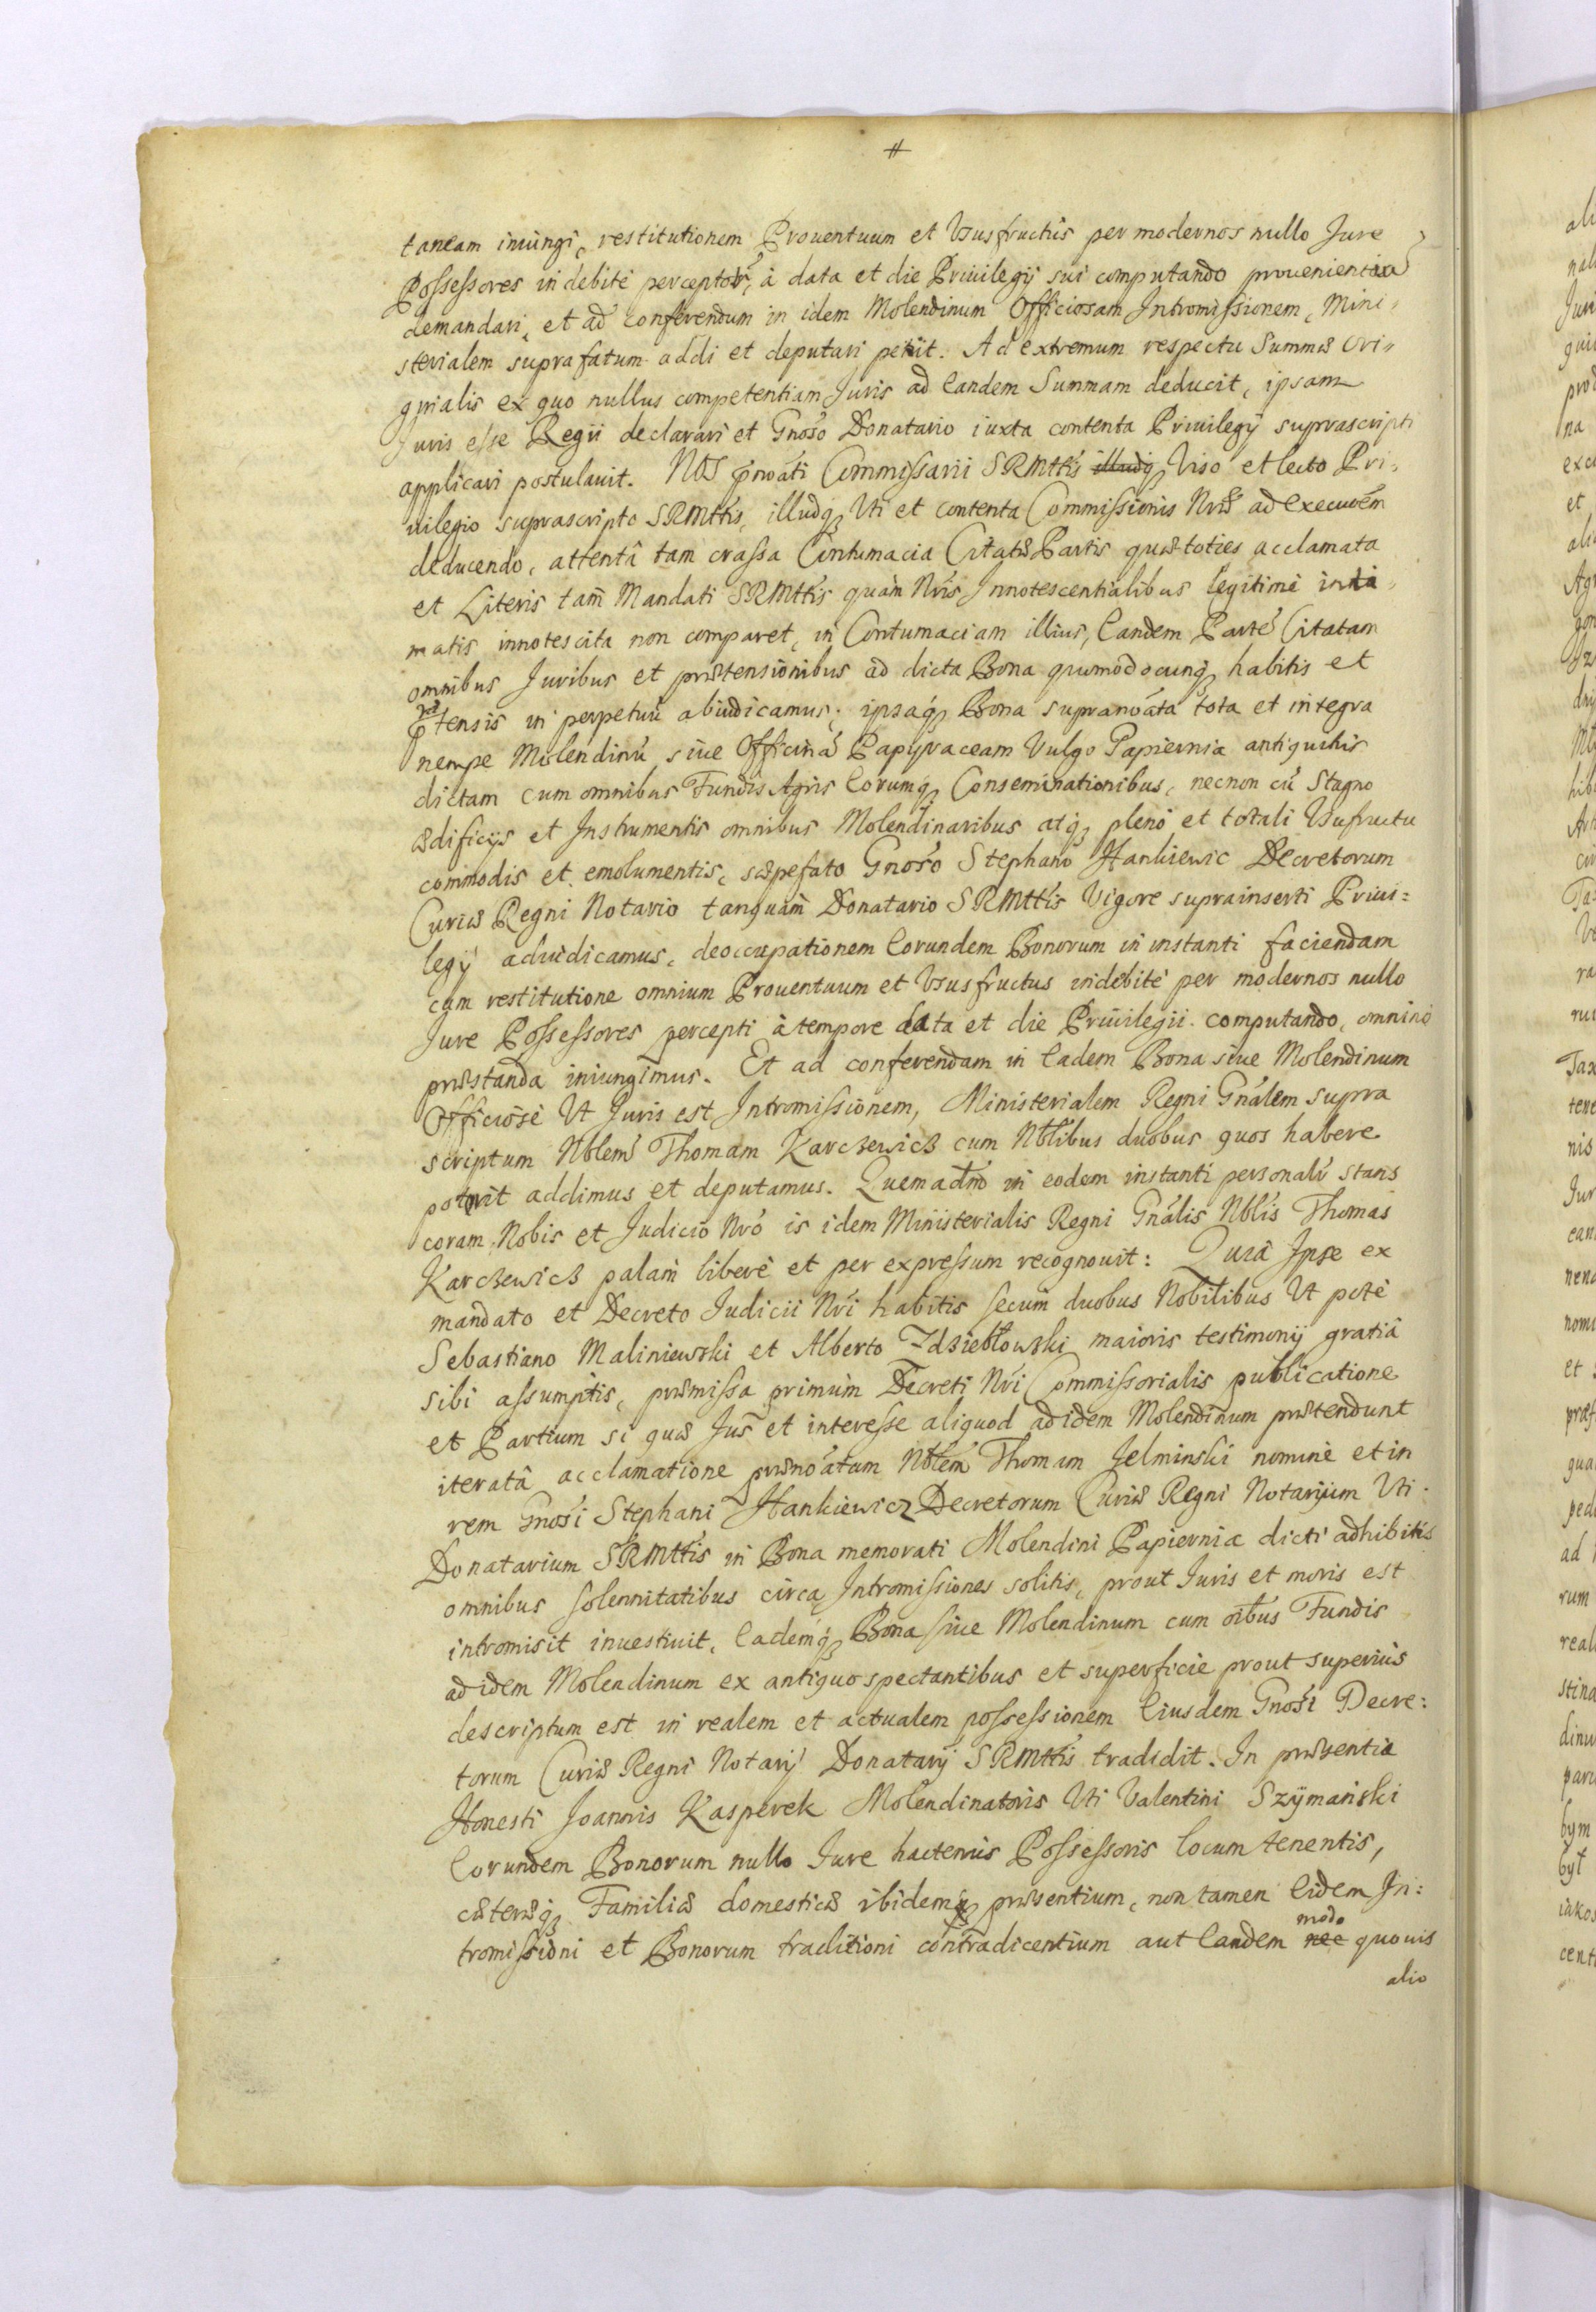 #
taneam iniungi, restitutionem Prouentuum et Vsusfructûs per modernos nullo Jure
Possessores indebitè perceptor̃, à data et die Priuilegij sui computando prouenientia
demandari, et ad conferendum in idem Molendinum Officiosam Intromissionem, Mini-
sterialem suprafatum addi et deputari petiit. Ad extremum respectu Summæ Ori-
ginalis ex quo nullus competentiam Juris ad Eandem Summam deducit, ipsam
Juris esse Regii declarari et Gnoso Donatario iuxta contenta Priuilegij suprascripti
applicari postulauit. NOS pñoati Commissarii SRMttis illudq3 Viso et lecto Pri-
uilegio suprascripto SRMttis, illudq3 Vti et contenta Commissionis Nræ ad Executẽm
deducendo, attentâ tam crassa Contumacia Citatæ Partis quæ toties acclamata
et Literis tam̃ Mandati SRMttis quàm Nris Innotescentialibus legitimè inti-
matis innotescita non comparet, in Contumaciam illius, Eandem Parte Citatam
omnibus Juribus et prætensionibus ad dicta Bona quomodocunq3 habitis et
prætensis in perpetuũ abiudicamus; ipsaq3 Bona supranoata tota et integra
nempe Molendinũ siue Officinã Papyraceam Vulgo Papiernia antiquitùs
dictam cum omnibus Fundis Agris Eorumq3 Conseminationibus, necnon cũ Stagno
ædificijs et Instrumentis omnibus Molendinaribus atq3 pleno et totali Vsufructu
commodis et emolumentis, sæpefato Gnoso Stephano Hankiewic Decretorum
Curiæ Regni Notario tanquam̃ Donatario SRMttis Vigore suprainserti Priui=
legij adiudicamus, deoccupationem Eorundem Bonorum in instanti faciendam
cum restitutione omnium Prouentuum et Vsusfructus indebitè per modernos nullo
Jure Possessores percepti à tempore data et die Priuilegii computando, omnino
præstanda iniungimus. Et ad conferendam in Eadem Bona siue Molendinum
Officiosè Vt Juris est Intromissionem, Ministerialem Regni Gnalem supra
scriptum Nblem Thomam Karczewicz cum Nblibus duobus quos habere
poterit addimus et deputamus. Quemadm̃o in eodem instanti personalr̃ stans
coram Nobis et Judicio Nrõ is idem Ministerialis Regni Gnalis Nblis Thomas
Karczewicz palam̃ liberè et per expressum recognouit: Quia Ipse ex
mandato et Decreto Judicii Nri habitis secum duobus Nobilibus Vt pote
Sebastiano Maliniewski et Alberto Idziebłowski maioris testimonij gratiâ
sibi assumptis, præmissa primùm Decreti Nri Commissorialis publicatione
et Partium si quæ Jus et interesse aliquod ad idem Molendinum prætendunt
iteratâ acclamatione prænoatum Nblem Thomam Jelminski nomine et in
rem Gnosi Stephani Hankiewicz Decretorum Curiæ Regni Notarijum Vti
Donatarium SRMttis in Bona memorati Molendini Papiernia dicti adhibitis
omnibus solennitatibus circa Intromissiones solitis, prout Juris et moris est
intromisit inuestiuit, Eademq3 Bona siue Molendinum cum oĩbus Fundis
ad idem Molendinum ex antiquo spectantibus et superficie prout superiùs
descriptum est in realem et actualem possessionem Eiusdem Gnosi Decre:
torum Curiæ Regni Notarij Donatarij SRMttis tradidit. In præsentia
Honesti Joannis Kasperek Molendinatoris Vti Valentini Szÿmański
Eorundem Bonorum nullo Jure hactenus Possessoris locum tenentis,
cæteræq3 Familiæ domesticæ ibidemq3 præsentium, non tamen Eidem In:
tromissioni et Bonorum traditioni contradicentium aut Eandem nec modo quouis
alio